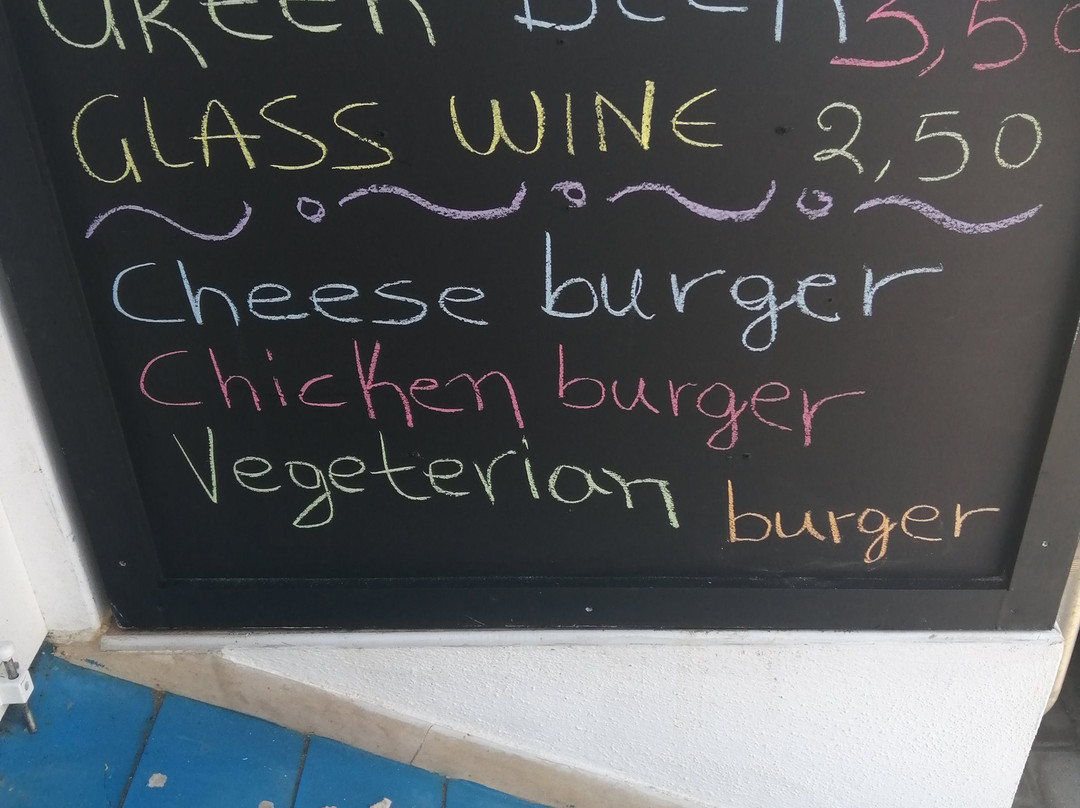 GREEK BEER
GLASS WINE 2,50
Cheese burger
Chicken burger
Vegeterian burger